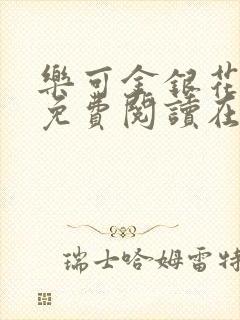 樂可金銀花
免費閱讀在
瑞士哈姆雷特